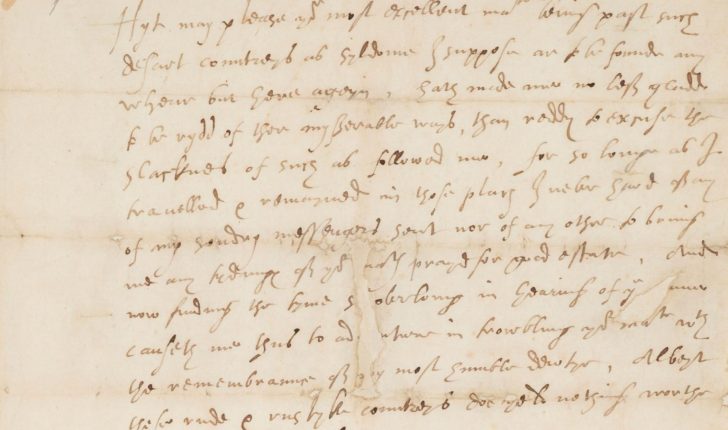 Hyt may please yor most excellent matie being past such
desart countreys as syldome I suppose are to be founde any
wheare but here ageyn, hath made me no less gladd
to be rydd of there mysserable ways, than reddy to excuse the
slacknes of such as followed me, for so longe as I
travelled & remayned in those plac I never hard of any
of my sondry messengers sent nor of any other to bring
me any tydinge of yor prayed for good estate, And
now finding the tyme overlong in hearing of
causeth me thus to in trowbling yor matie wth
the remembrance of my most humble dewtye, Albeyt
these rude & rustyke countreys doe yeld nothing worthe